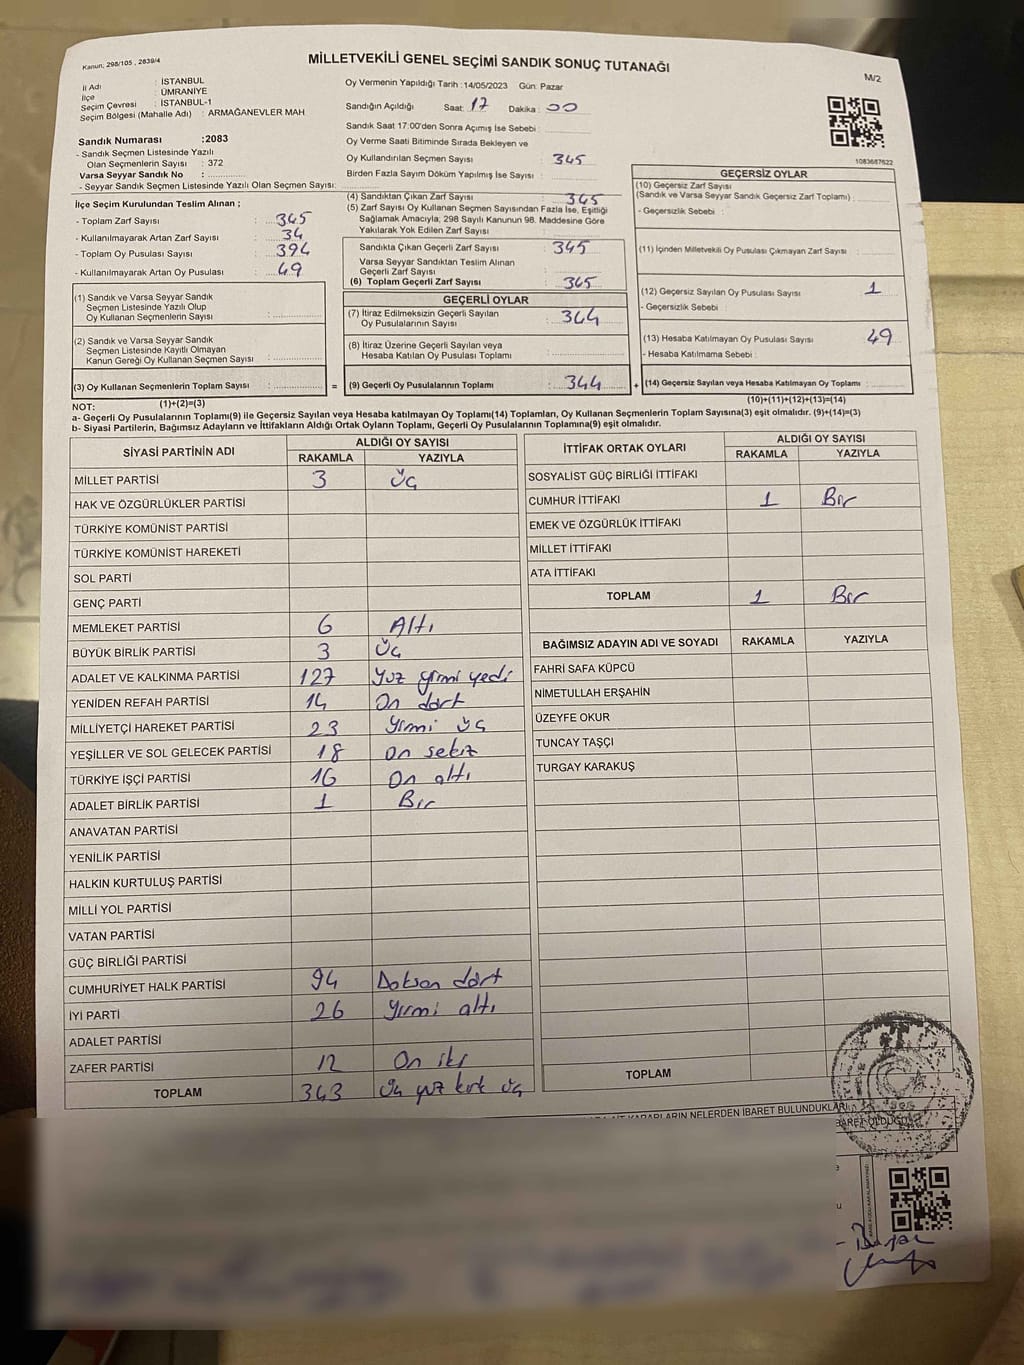 Kanun: 298/105 , 2839/4
MİLLETVEKİLİ GENEL SEÇİMİ SANDIK SONUÇ TUTANAĞI
M/2
İl Adı : İSTANBUL
İlçe : ÜMRANİYE
Seçim Çevresi : İSTANBUL-1
Seçim Bölgesi (Mahalle Adı) : ARMAĞANEVLER MAH
Sandık Numarası :2083
- Sandık Seçmen Listesinde Yazılı
Olan Seçmenlerin Sayısı : 372
Varsa Seyyar Sandık No :
- Seyyar Sandık Seçmen Listesinde Yazılı Olan Seçmen Sayısı:
Oy Vermenin Yapıldığı Tarih :14/05/2023 Gün: Pazar
Sandığın Açıldığı Saat: 17 Dakika : 00
Sandık Saat 17:00'den Sonra Açımış İse Sebebi :
Oy Verme Saati Bitiminde Sırada Bekleyen ve
Oy Kullandırılan Seçmen Sayısı : 345
Birden Fazla Sayım Döküm Yapılmış İse Sayısı :
1083687622
İlçe Seçim Kurulundan Teslim Alınan ;
- Toplam Zarf Sayısı : 345
- Kullanılmayarak Artan Zarf Sayısı : 34
- Toplam Oy Pusulası Sayısı : 394
- Kullanılmayarak Artan Oy Pusulası : 49
(1) Sandık ve Varsa Seyyar Sandık
Seçmen Listesinde Yazılı Olup
Oy Kullanan Seçmenlerin Sayısı :
(2) Sandık ve Varsa Seyyar Sandık
Seçmen Listesinde Kayıtlı Olmayan
Kanun Gereği Oy Kullanan Seçmen Sayısı :
(3) Oy Kullanan Seçmenlerin Toplam Sayısı :
(1)+(2)=(3)
(4) Sandıktan Çıkan Zarf Sayısı : 345
(5) Zarf Sayısı Oy Kullanan Seçmen Sayısından Fazla İse, Eşitliği
Sağlamak Amacıyla, 298 Sayılı Kanunun 98. Maddesine Göre
Yakılarak Yok Edilen Zarf Sayısı :
Sandıkta Çıkan Geçerli Zarf Sayısı : 345
Varsa Seyyar Sandıktan Teslim Alınan
Geçerli Zarf Sayısı :
(6) Toplam Geçerli Zarf Sayısı : 345
GEÇERLİ OYLAR
(7) İtiraz Edilmeksizin Geçerli Sayılan
Oy Pusulalarının Sayısı : 344
(8) İtiraz Üzerine Geçerli Sayılan veya
Hesaba Katılan Oy Pusulası Toplamı :
= (9) Geçerli Oy Pusulalarının Toplamı : 344 +
GEÇERSİZ OYLAR
(10) Geçersiz Zarf Sayısı
(Sandık ve Varsa Seyyar Sandık Geçersiz Zarf Toplamı) :
- Geçersizlik Sebebi :
(11) İçinden Milletvekili Oy Pusulası Çıkmayan Zarf Sayısı :
(12) Geçersiz Sayılan Oy Pusulası Sayısı : 1
- Geçersizlik Sebebi :
(13) Hesaba Katılmayan Oy Pusulası Sayısı : 49
- Hesaba Katılmama Sebebi :
(14) Geçersiz Sayılan veya Hesaba Katılmayan Oy Toplamı :
(10)+(11)+(12)+(13)=(14)
NOT:
a- Geçerli Oy Pusulalarının Toplamı(9) ile Geçersiz Sayılan veya Hesaba katılmayan Oy Toplamı(14) Toplamları, Oy Kullanan Seçmenlerin Toplam Sayısına(3) eşit olmalıdır. (9)+(14)=(3)
b- Siyasi Partilerin, Bağımsız Adayların ve İttifakların Aldığı Ortak Oyların Toplamı, Geçerli Oy Pusulalarının Toplamına(9) eşit olmalıdır.
SİYASİ PARTİNİN ADI ALDIĞI OY SAYISI
RAKAMLA YAZIYLA
MİLLET PARTİSİ 3 Üç
HAK VE ÖZGÜRLÜKLER PARTİSİ
TÜRKİYE KOMÜNİST PARTİSİ
TÜRKİYE KOMÜNİST HAREKETİ
SOL PARTİ
GENÇ PARTİ
MEMLEKET PARTİSİ 6 Altı
BÜYÜK BİRLİK PARTİSİ 3 Üç
ADALET VE KALKINMA PARTİSİ 127 Yuz yirmi yedi
YENİDEN REFAH PARTİSİ 14 On dört
MİLLİYETÇİ HAREKET PARTİSİ 23 Yirmi üç
YEŞİLLER VE SOL GELECEK PARTİSİ 18 On sekiz
TÜRKİYE İŞÇİ PARTİSİ 16 On altı
ADALET BİRLİK PARTİSİ 1 Bir
ANAVATAN PARTİSİ
YENİLİK PARTİSİ
HALKIN KURTULUŞ PARTİSİ
MİLLİ YOL PARTİSİ
VATAN PARTİSİ
GÜÇ BİRLİĞİ PARTİSİ
CUMHURİYET HALK PARTİSİ 94 Doksan dört
İYİ PARTİ 26 Yirmi altı
ADALET PARTİSİ
ZAFER PARTİSİ 12 On iki
TOPLAM 343 Üç yuz kırk üç
İTTİFAK ORTAK OYLARI ALDIĞI OY SAYISI
RAKAMLA YAZIYLA
SOSYALİST GÜÇ BİRLİĞİ İTTİFAKI
CUMHUR İTTİFAKI 1 Bir
EMEK VE ÖZGÜRLÜK İTTİFAKI
MİLLET İTTİFAKI
ATA İTTİFAKI
TOPLAM 1 Bir
BAĞIMSIZ ADAYIN ADI VE SOYADI RAKAMLA YAZIYLA
FAHRİ SAFA KÜPCÜ
NİMETULLAH ERŞAHİN
ÜZEYFE OKUR
TUNCAY TAŞÇI
TURGAY KARAKUŞ
TOPLAM
KARARLARIN NELERDEN İBARET BULUNDUKLARI